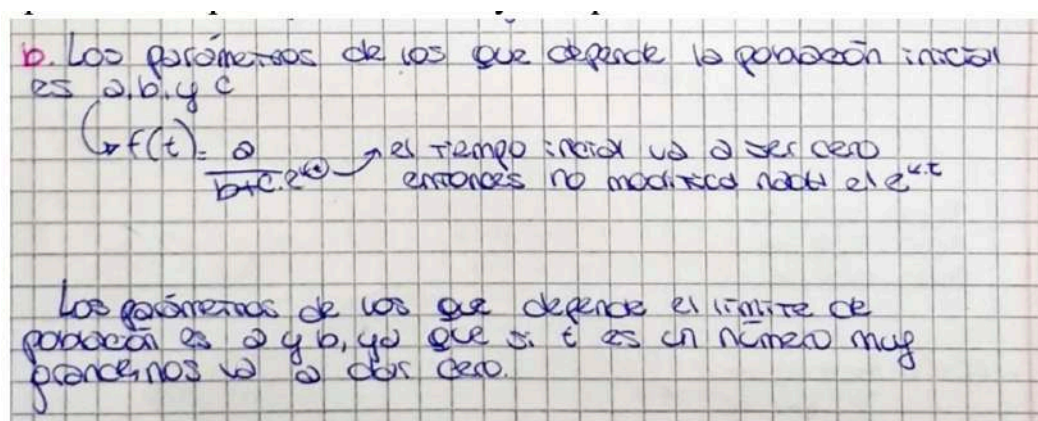 b. Los parámetros de los que depende la población inicial
es a, b, y c
f(t) = a / b+c.e → el tiempo inicial va a ser cero
entonces no modifica nada el e^k.t
Los parámetros de los que depende el límite de
población es a y b, ya que si t es un número muy
grande, nos va a dar cero.